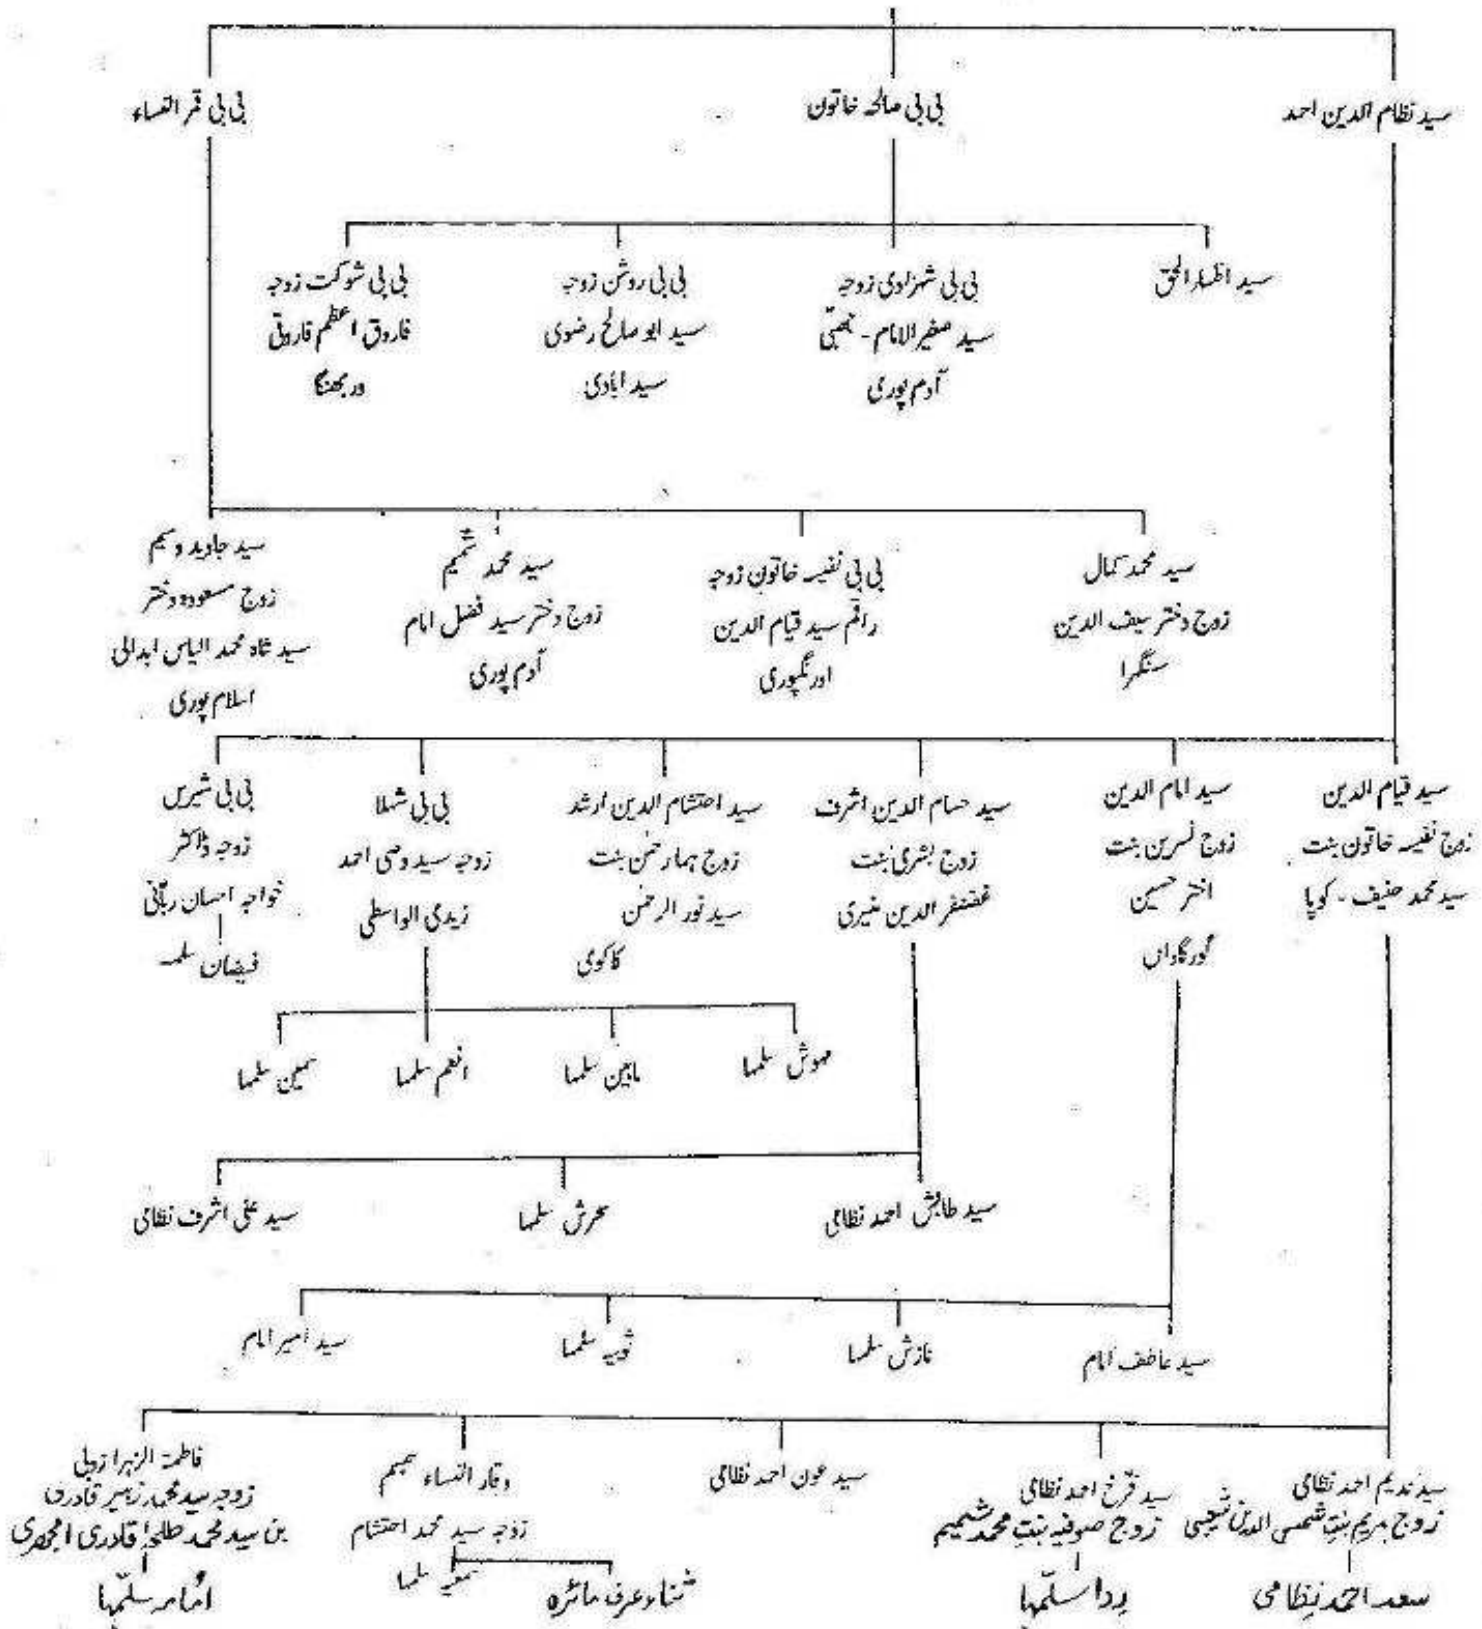 سید نظام الدین احمد
بی بی صالحہ خاتون
بی بی قمر النساء
سید اظہار الحق
بی بی شہزادی زوجہ
سید صغیر الامام -
آدم پوری
بی بی روشن زوجہ
سید ابو صالح رضوی
سید ابادی
بی بی شوکت زوجہ
فاروق اعظم فاروقی
دربھنگا
سید محمد کمال
زوج دختر سیف الدین
سنگرا
بی بی نفیسہ خاتون زوجہ
راقم سید قیام الدین
اورنگپوری
سید محمد شمیم
زوج دختر سید فضل امام
آدم پوری
سید جاوید وسیم
زوج مسعودہ دختر
سید شاہ محمد الیاس ابدالی
اسلام پوری
سید قیام الدین
زوج نفیسہ خاتون بنت
سید محمد حنیف - کوپا
سید امام الدین
زوج نسرین بنت
اختر حسین
گورگاواں
سید حسام الدین اشرف
زوج بشری بنت
غضنفر الدین منیری
سید احتشام الدین ارشد
زوج ہما رحمٰن بنت
سید نور الرحمٰن
کاکوی
بی بی شہلا
زوجہ سید وصی احمد
زیدی الواسطی
بی بی شیریں
زوجہ ڈاکٹر
خواجہ احسان ربّانی
فیضان سلمہ
مہوش سلمہا
ماہین سلمہا
انعم سلمہا
سلمہا
سید طابش احمد نظامی
سحرش سلمہا
سید علی اشرف نظامی
سید عاطف امام
نازش سلمہا
ثوبیہ سلمہا
سید امیر امام
سید ندیم احمد نظامی
زوج مریم بنتِ شمس الدین شعیبی
سعد احمد نظامی
سید فرخ احمد نظامی
زوج صوفیہ بنتِ محمد شمیم
رِدا سلّمہا
سید عون احمد نظامی
وقار النساء
زوجہ سید محمد احتشام
سمعیہ سلمہا
ثناء عرف مائرہ
فاطمۃ الزہرا زوبی
زوجہ سید محمد زبیر قادری
بن سید محمد طلحہٰ قادری امجھری
اُمامہ سلّمہا